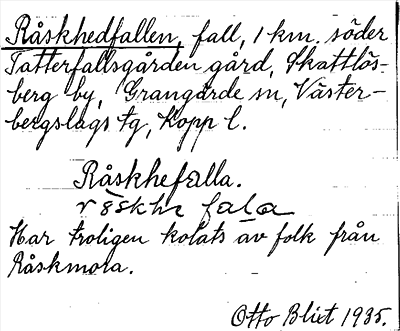 Råskhedfallen, fall, 1 km. söder
Tatterfallsgården gård, Skattlös-
berg by, Grangärde sn, Väster-
bergslags tg, Kopp l.
Råskhefælla.
Har troligen kolats av folk från
Råskmora.
Otto Blixt 1935.